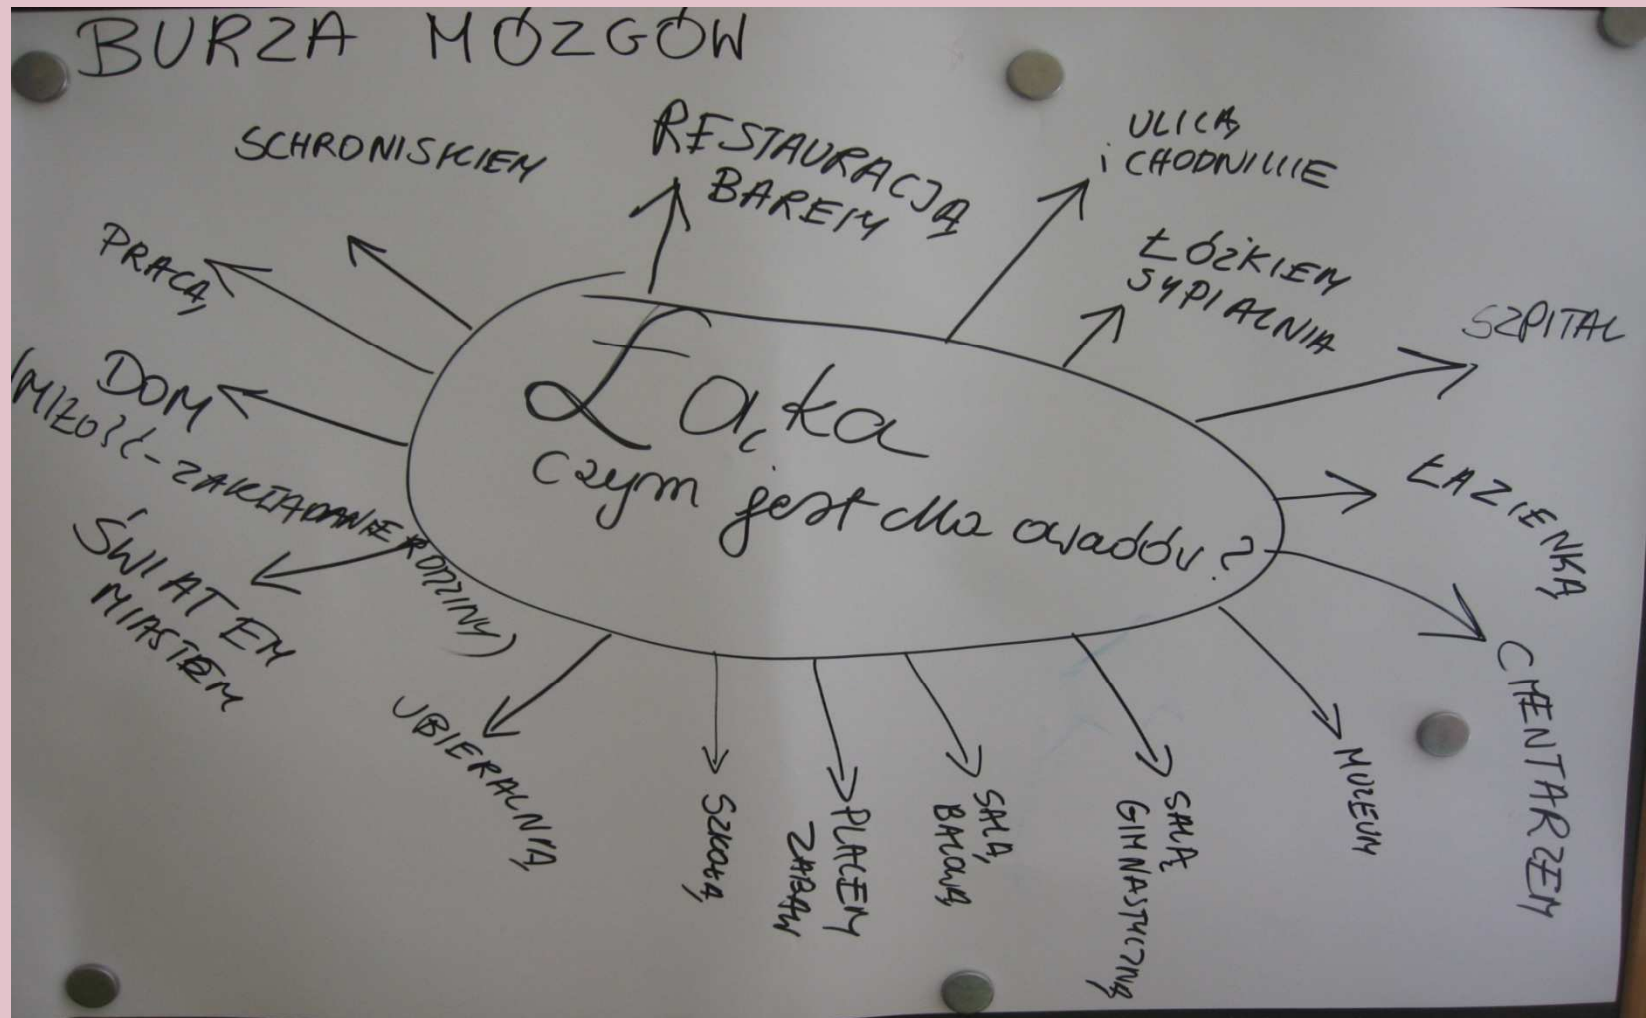 BURZA MÓZGÓW
Łąka
czym jest dla owadów?
SCHRONISKIEM
RESTAURACJĄ
BAREM
ULICĄ
i CHODNIKIE
ŁÓŻKIEM
SYPIALNIA
SZPITAL
ŁAZIENKĄ
CMENTARZEM
MUZEUM
SALĄ
GIMNASTYCZNĄ
SALĄ
BALOWĄ
PLACEM
ZABAW
SZKOŁĄ
UBIERALNIĄ
ŚWIATEM
MIASTEM
DOM
(MIŁOŚĆ - ZAKŁADANIE RODZINY)
PRACĄ